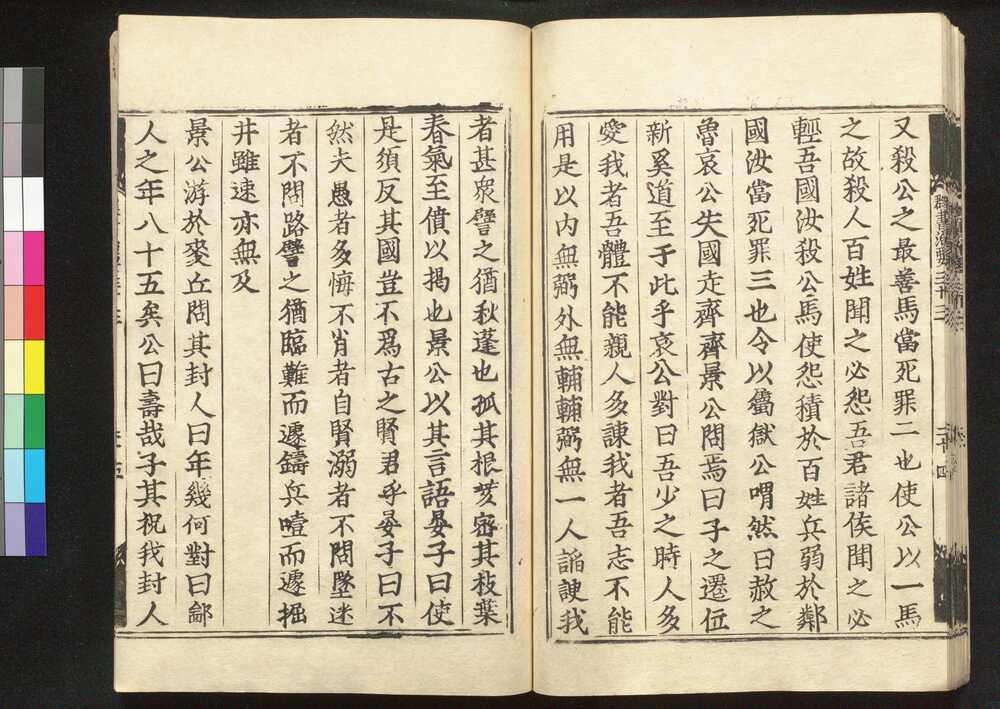 又殺公之最善馬當死罪二也使公以一馬
之故殺人百姓聞之必怨吾君諸侯聞之必
輕吾國汝殺公馬使怨積於百姓兵弱於鄰
國汝當死罪三也令以屬獄公喟然曰赦之
魯哀公失國走齊齊景公問焉曰子之遷位
新奚道至于此乎哀公對曰吾少之時人多
愛我者吾體不能親人多諫我者吾志不能
用是以内無弼外無輔輔弼無一人諂諛我
者甚衆譬之猶秋蓬也孤其根荄密其枝葉
春氣至僨以揭也景公以其言語晏子曰使
是須反其國豈不爲古之賢君乎晏子曰不
然夫愚者多悔不肖者自賢溺者不問墜迷
者不問路譬之猶臨難而遽鑄兵噎而遽掘
井雖速亦無及
景公游於麥丘問其封人曰年幾何對曰鄙
人之年八十五矣公曰壽哉子其祝我封人